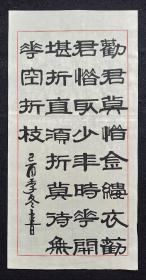 勸君莫惜金縷衣勸
君惜取少年時華開
堪折直須折莫待無
華空折枝
季冬